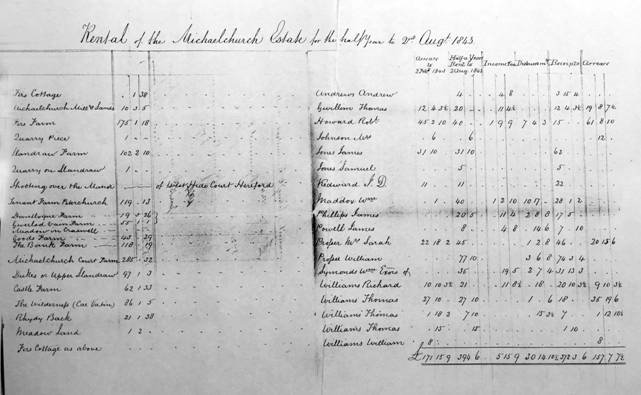 Rental of the Michaelchurch Estate for the half Year to 2nd Augt 1843
Arrears to 2 Feby 1843 Half a Years Rent to 2 Aug 1843 Income Tax Receipts Arrears
Fire Cottage . 1 38 Andrews Andrew 4 4 8 3 15 4
Michaelchurch Mill James 10 3 5 Gwillim Thomas 12 4 3½ 20 11 4½ 12 4 3½ 19 8 7½
Fire Farm 175 1 18 Howard Robt. 45 2 10 40 1 9 9 7 4 3 15 61 8 10
Quarry Piece 1 Johnson Mrs 6 6 12
Llandraw Farm 102 2 10 Jones James 31 10 31 10 62
Quarry on Llandraw 1 Jones Samuel 5 5
Shooting over the Mund of West Hide Court Hereford Kedward J. D. 11 11 22
Tennant Farm Peterchurch 119 . 13 Maddox Wm 1 40 1 2 10 10 17 28 1 2
Farm 19 3 26 Phillips James 20 5 11 4 2 8 8 17 5
Powell James 8 4 8 14 6 7 10
Meadow in Craswell
Goods Farm 43 . 29 Prosser Mrs Sarah 22 18 2 45 1 2 8 46 20 15 6
The Bank Farm 118 . 19 Prosser William 77 10 3 6 8 74 3 4
Michaelchurch Court Farm 285 . 32 Symonds Wm Exors of 35 19 5 2 7 4 31 13 3
Dukes or Upper Llandraw 97 1 3 Williams Richard 10 10 3½ 21 11 8½ 18 20 10 3½ 9 10 3½
Castle Farm 62 1 33 Williams Thomas 27 10 27 10 1 6 18 35 19 6
The Wilderness (Cae Vatin) 86 1 5 Williams Thomas 1 18 2 7 10 15 3½ 7 1 12 10½
Rhydy Back 21 1 38 Williams Thomas 15 15 1 10
Meadow Land 1 2 . Williams William 8 8
Fire Cottage as above £171 15 9 394 6 5 15 9 30 14 10½ 372 3 6 157 7 7½